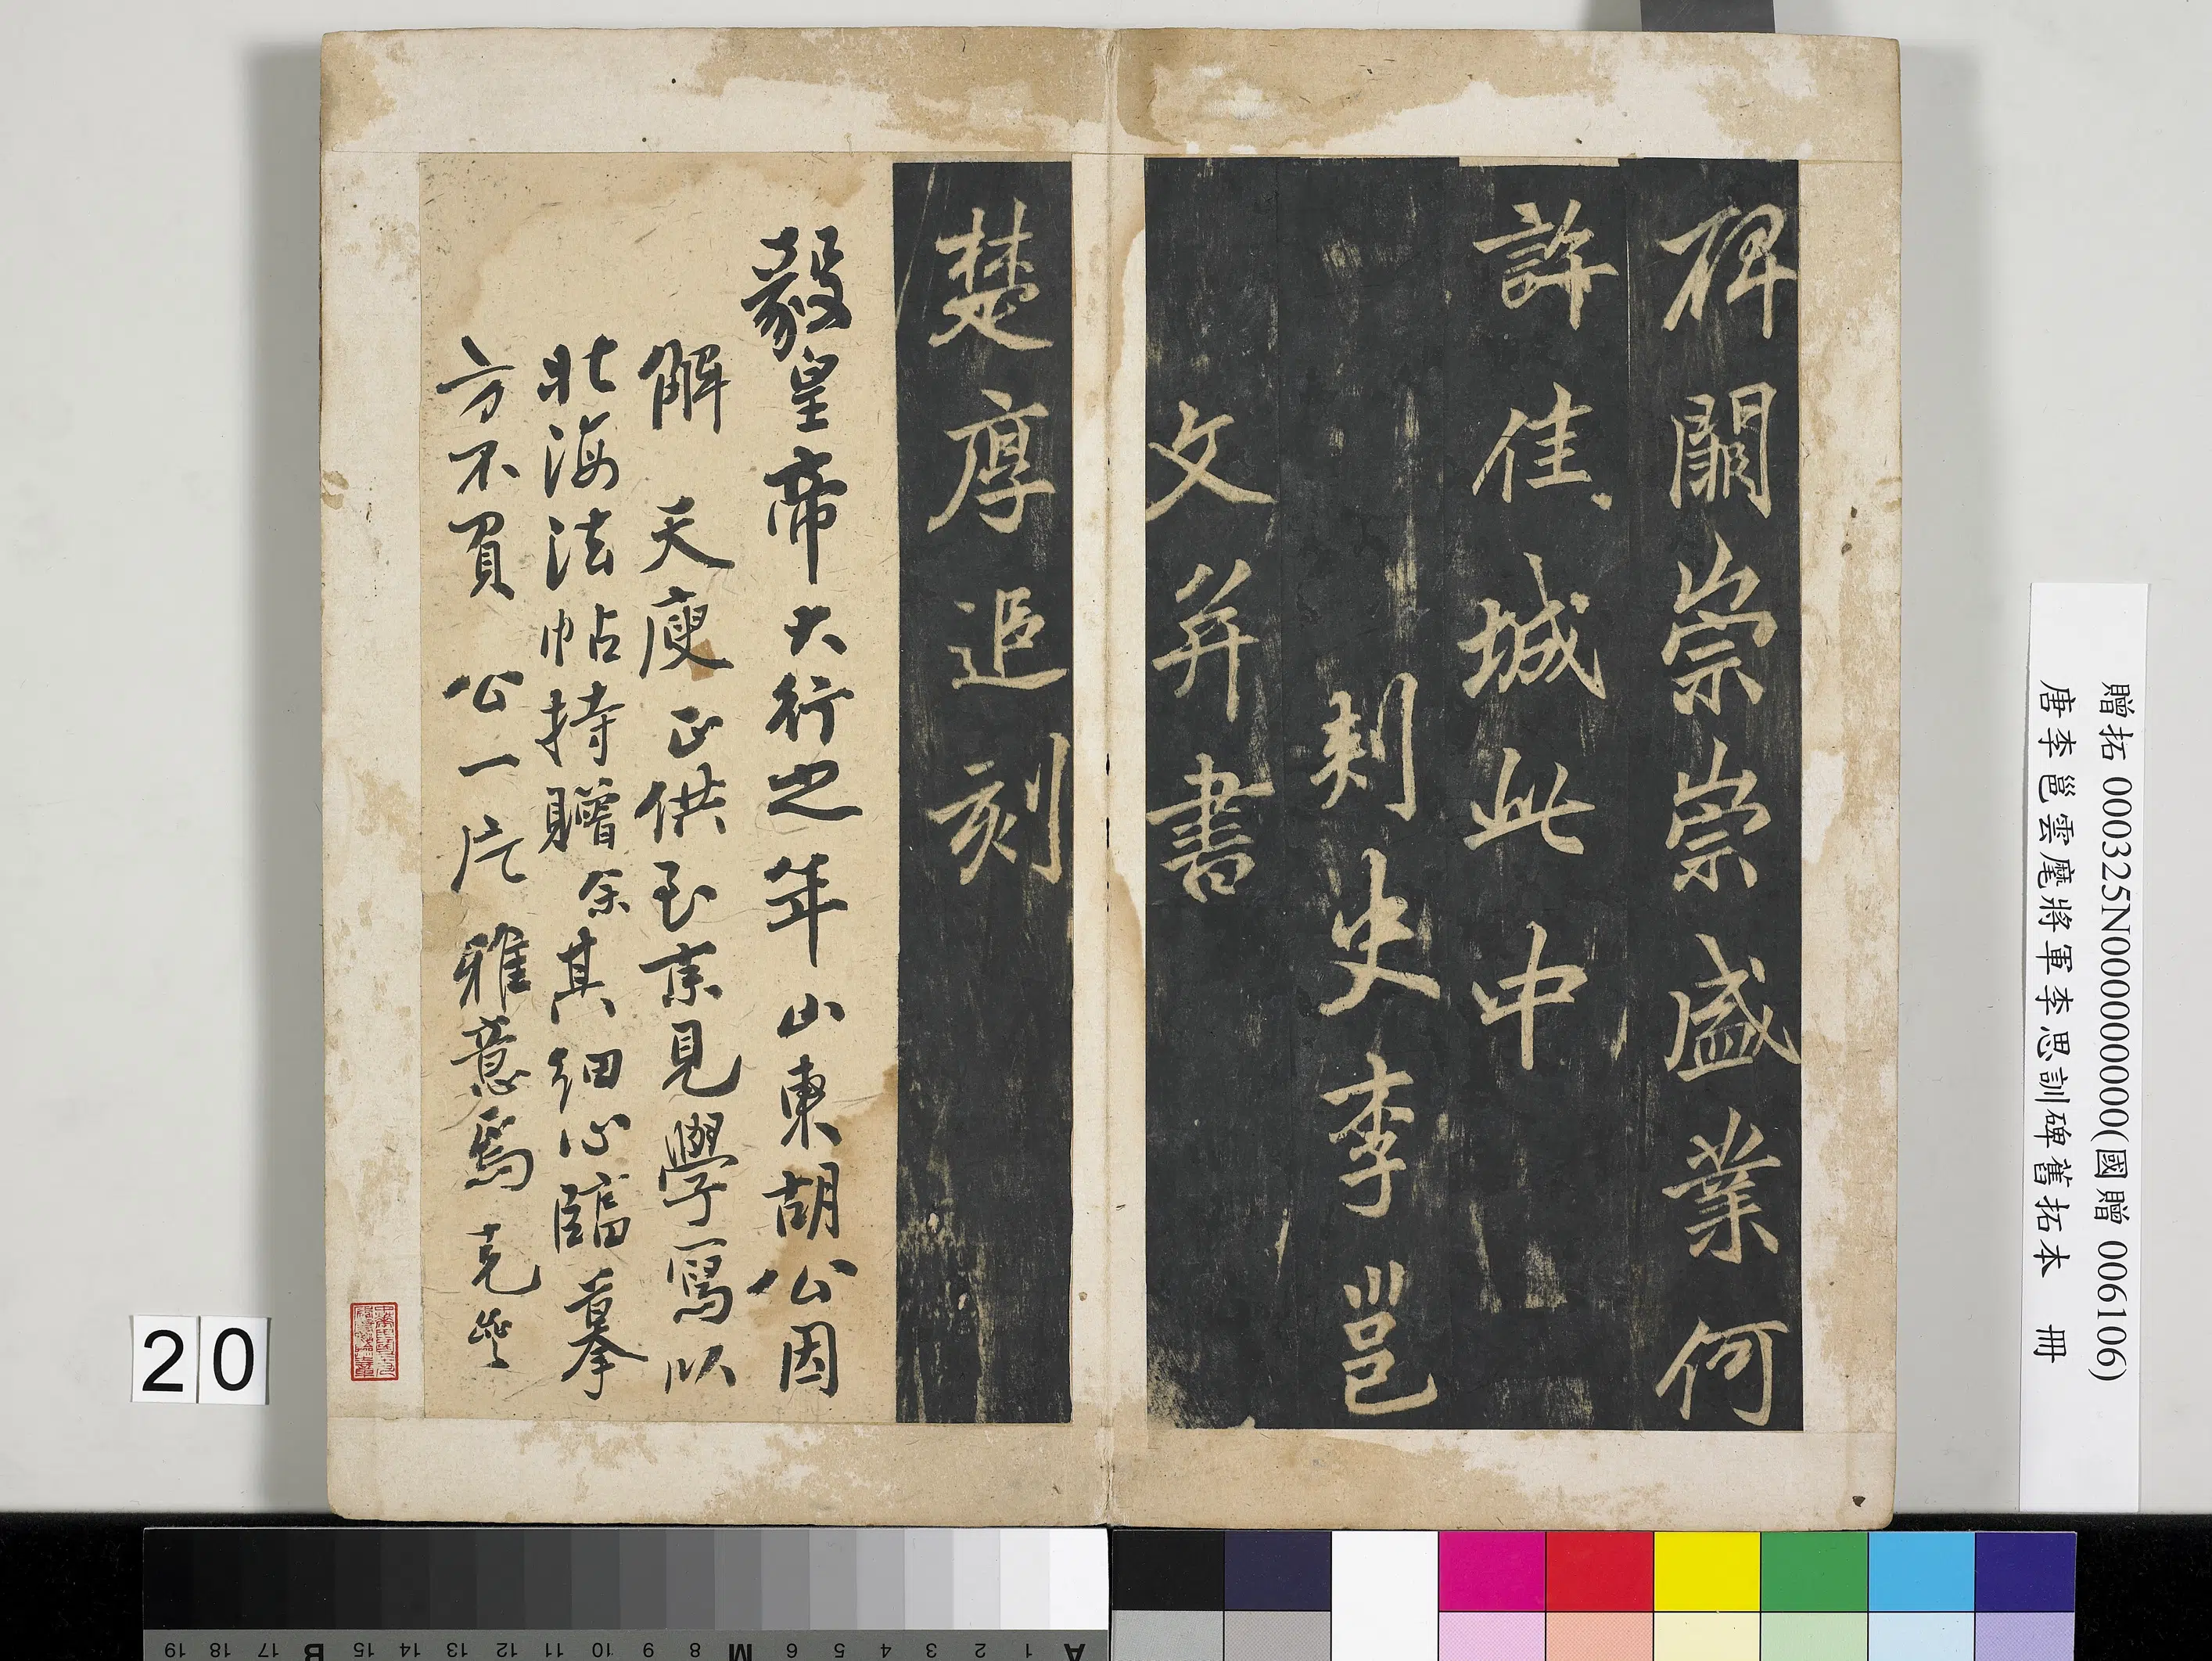 碑闕崇崇盛業何
許佳城此中
刾史李邕
文并書
楚厚追刻
毅皇帝大行之年山東胡公因
解天廋正供至京見學寫以
北海法帖持贈余其細心臨摹
方不負公一片雅意焉
贈拓 000325N000000000(國贈 006106)
唐李邕雲麾將軍李思訓碑舊拓本 冊
20
A 1 2 3 4 5 6 M 8 9 10 11 12 13 14 15 B 17 18 19